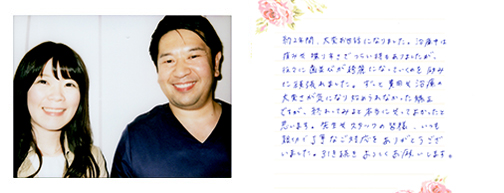 約2年間、大変お世話になりました。治療中は
痛みや喋りずらさでつらい時もありましたが、
徐々に歯並びが綺麗になっていくのを励み
に頑張れました。ずっと費用や治療の
大変さが気になり始められなかった矯正
ですが、終わってみると本当にやってよかったと
思います。先生やスタッフの皆様、いつも
親切で丁寧なご対応をありがとうござ
いました。引き続きよろしくお願いします。